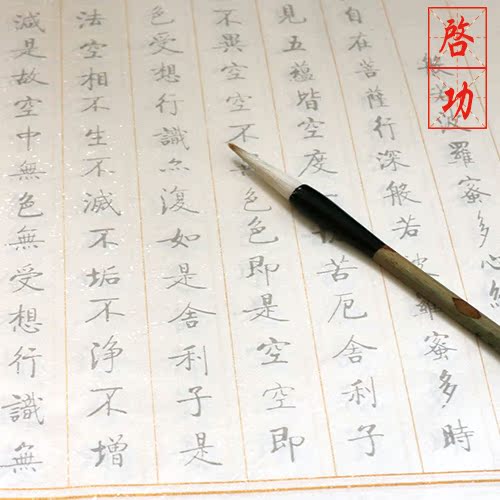 啓功
般若波羅蜜多心
自在菩薩行深般若波羅蜜多時
見五蘊皆空度一切苦厄舍利子
不異空空不異色色即是空空即
色受想行識亦復如是舍利子是
法空相不生不滅不垢不淨不增
減是故空中無色無受想行識無